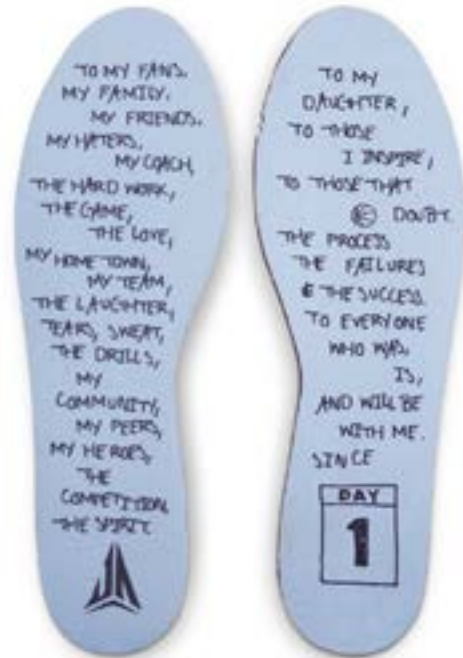 TO MY FANS,
MY FAMILY,
MY FRIENDS,
MY HATERS,
MY COACH,
THE HARD WORK,
THE GAME,
THE LOVE,
MY HOME TOWN,
MY TEAM,
THE LAUGHTER,
TEARS, SWEAT,
THE DRILLS,
MY
COMMUNITY,
MY PEERS,
MY HEROES,
THE
COMPETITION,
THE SPIRIT
JA
TO MY
DAUGHTER,
TO THOSE
I INSPIRE,
TO THOSE THAT
DOUBT.
THE PROCESS
THE FAILURES
& THE SUCCESS.
TO EVERYONE
WHO WAS,
IS,
AND WILL BE
WITH ME.
SINCE
DAY
1